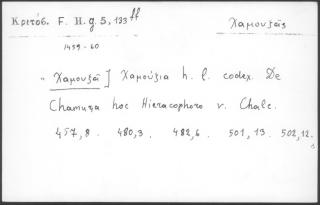 Κριτόβ. F. H. g. 5, 133 ff
Χαμουζᾶς
1459-60
„ Χαμουζᾶ ] Χαμούζια h. l. codex. De
Chamuza hoc Hieracophoro v. Chalc.
457,8. 480,3. 482,6. 501,13. 502,12.